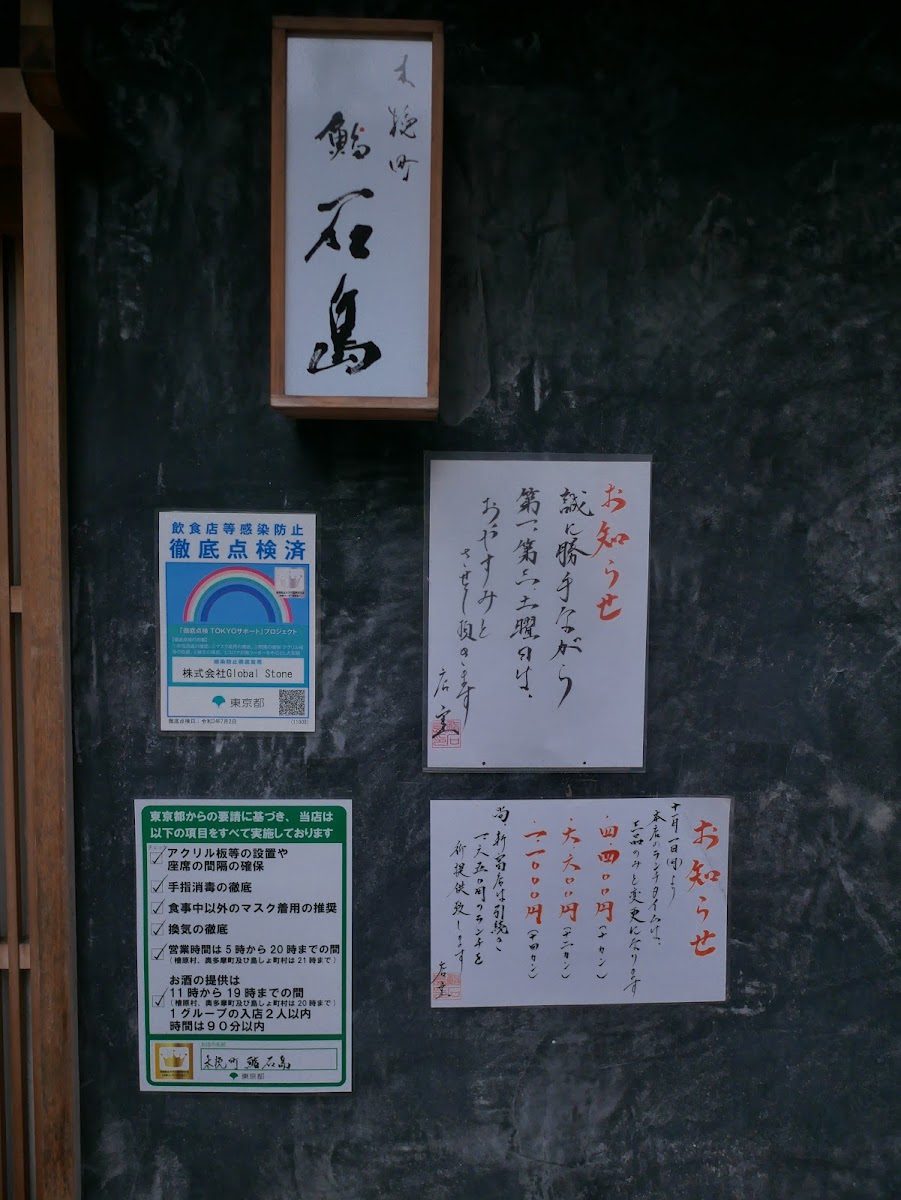 木挽町
鮨 石島
飲食店等感染防止
徹底点検済
「徹底点検 TOKYOサポート」プロジェクト
感染防止徹底宣言
株式会社Global Stone
東京都
徹底点検日:令和3年7月2日
お知らせ
誠に勝手ながら
第一、第三、土曜日は、
おやすみと
させて頂きます
店主
東京都からの要請に基づき、当店は
以下の項目をすべて実施しております
アクリル板等の設置や
座席の間隔の確保
手指消毒の徹底
食事中以外のマスク着用の推奨
換気の徹底
営業時間は5時から20時までの間
(檜原村、奥多摩町及び島しょ町村は21時まで)
お酒の提供は
11時から19時までの間
(檜原村、奥多摩町及び島しょ町村は20時まで)
1グループの入店2人以内
時間は90分以内
木挽町 鮨 石島
東京都
お知らせ
十一月一日(月)より
本店のランチタイムは、
三品のみと変更になります
・四、四〇〇円(十カン)
・六、六〇〇円(十二カン)
・一一、〇〇〇円(十四カン)
尚、新富店は引続き
一六五〇円のランチを
御提供致します
店主